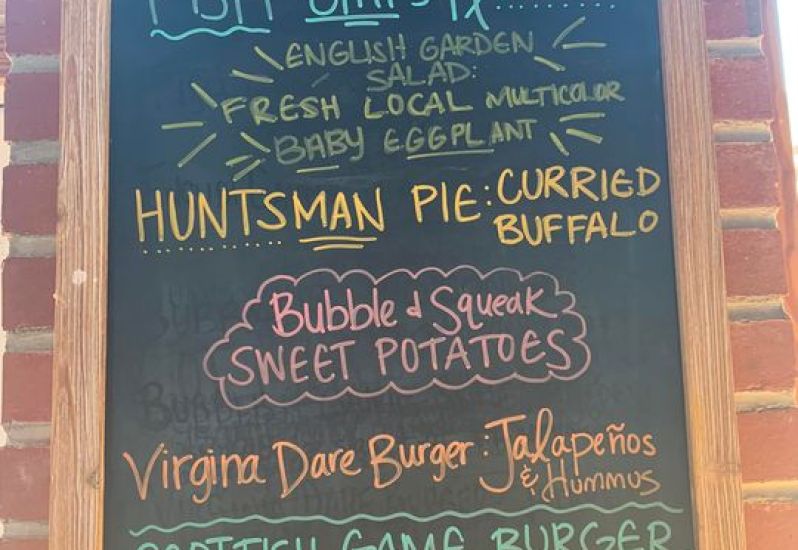 ENGLISH GARDEN
SALAD:
FRESH LOCAL MULTICOLOR
BABY EGGPLANT
HUNTSMAN PIE: CURRIED
BUFFALO
Bubble & Squeak
SWEET POTATOES
Virgina Dare Burger: Jalapeños
& Hummus
SCOTTISH GAME BURGER